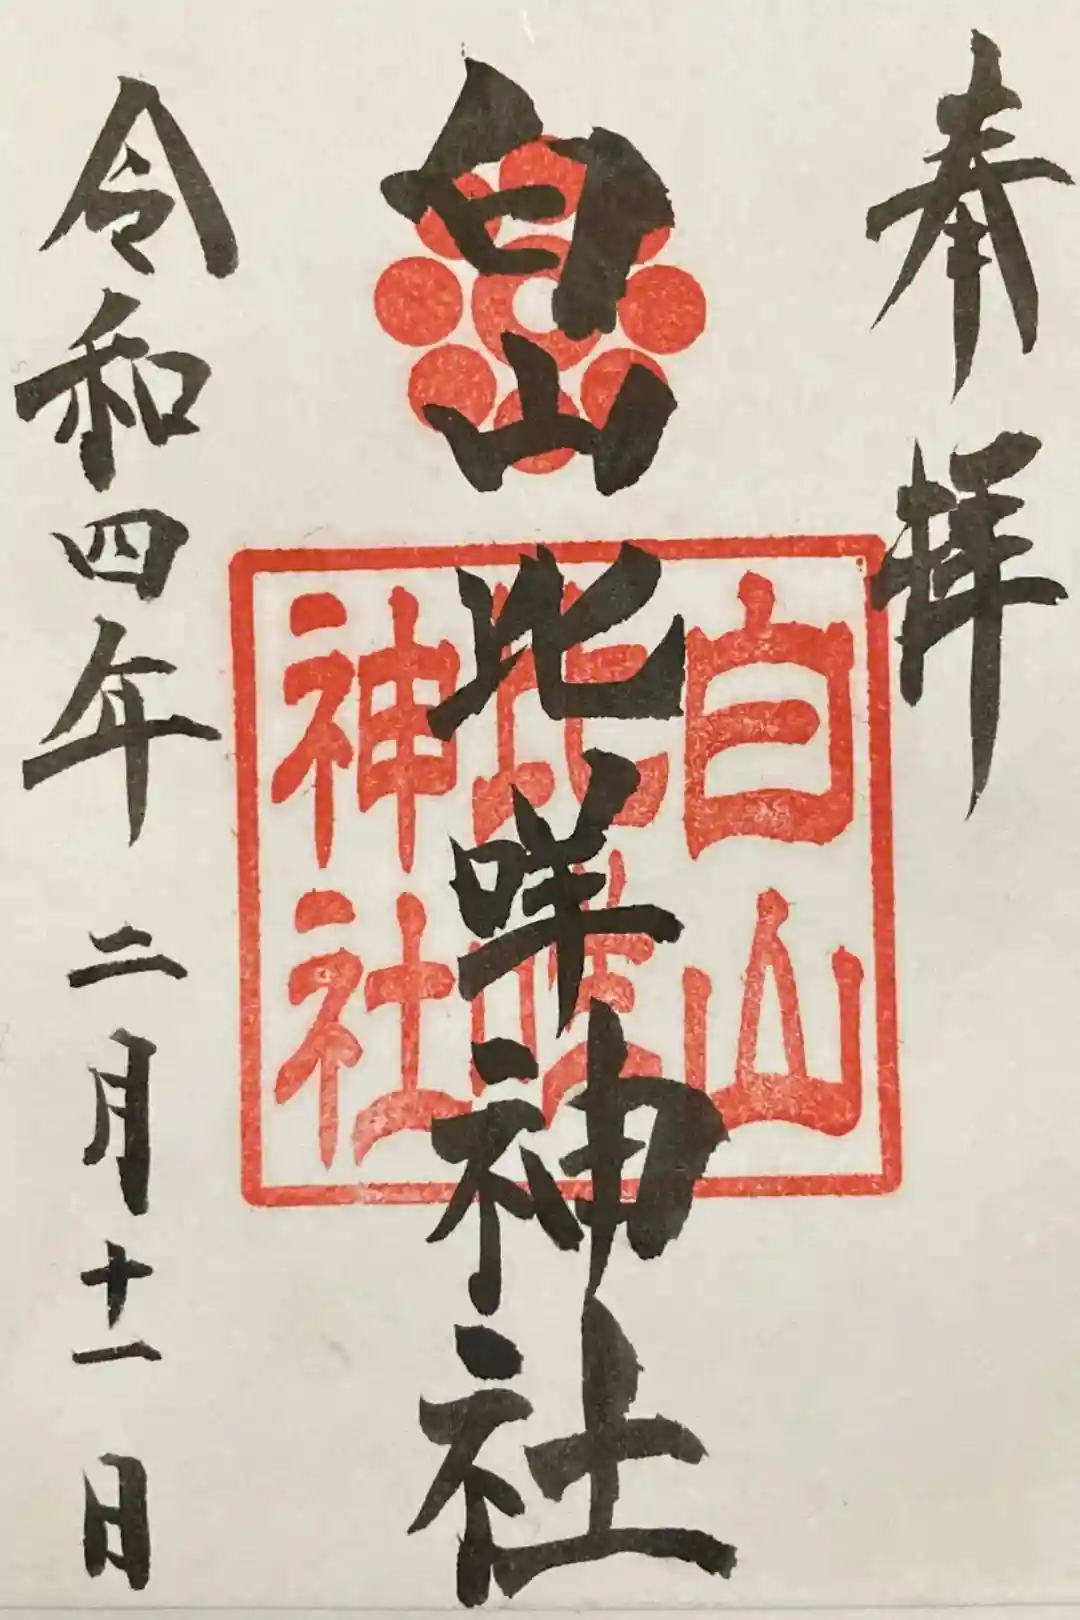 奉拝
白山比咩神社
白山
比咩
神社
令和四年二月十一日